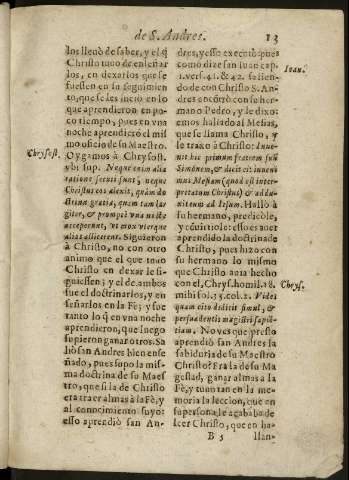 de S. Andres.
13
los lleuò de saber, y el q̃
Christo tuuo de enseñar
los, en dexarlos que se
fuessen en su seguimien
to, que se les luciò en lo
que aprendieron en po-
co tiempo, pues en vna
noche aprendiò el mis
mo oficio de su Maestro.
Oygamos à Chrysost.
Chrysost.
vbi sup. Neque enim alia
ratione secuti sunt, neque
Christus eos alexit, quàm do
ctrina gratia, quem tam
giter, & promptè vna nocte
acceperunt, vt mox vterque
alias allicerent. Siguieron
à Christo, no con otro
animo que el que tuuo
Christo en dexar le si-
guiessen; y el de ambos
fue el doctrinarlos, y en
señarlos en la Fè; y fue
tanto lo q̃ en vna noche
aprendieron, que luego
supieron ganar otros. Sa
liò san Andres bien ense
ñado, pues supo la mis-
ma doctrina de su Maes
tro, que si la de Christo
era traer almas à la Fè, y
al conocimiento suyo:
esso aprendiò san An-
dres, y esso executò: pues
como dize san Iuan cap.
Iuan.
1. vers. 41. & 42. salien-
do de con Christo S. An-
dres encõtrò con su her-
mano Pedro, y le dixo:
emos hallado al Mesias,
que se llama Christo, y
le traxo à Christo: Inue-
nit hic primum fratrem suũ
Simonem, & dicit ei: inueni
mus Mesiam (quod est inter-
pretatum Christus) & addu-
xit eum ad Iesum. Hallò à
su hermano, predicòle,
y cõuirtiòle: esso es auer
aprendido la doctrina de
Christo, pues hizo con
su hermano lo mismo
que Christo auia hecho
con el, Chrys. homil. 18.
Chrys.
mihi fol. 35. col. 2. Vides
quam citò didicit simul, &
persuadentis magistri sapiẽ
tiam. No ves que presto
aprendiò san Andres la
sabiduria de su Maestro
Christo? Era la de su Ma
gestad, ganar almas à la
Fè, y tuuo tan en la me-
moria la leccion, que en
su persona le acababa de
leer Christo, que en ha-
B 5
llan-